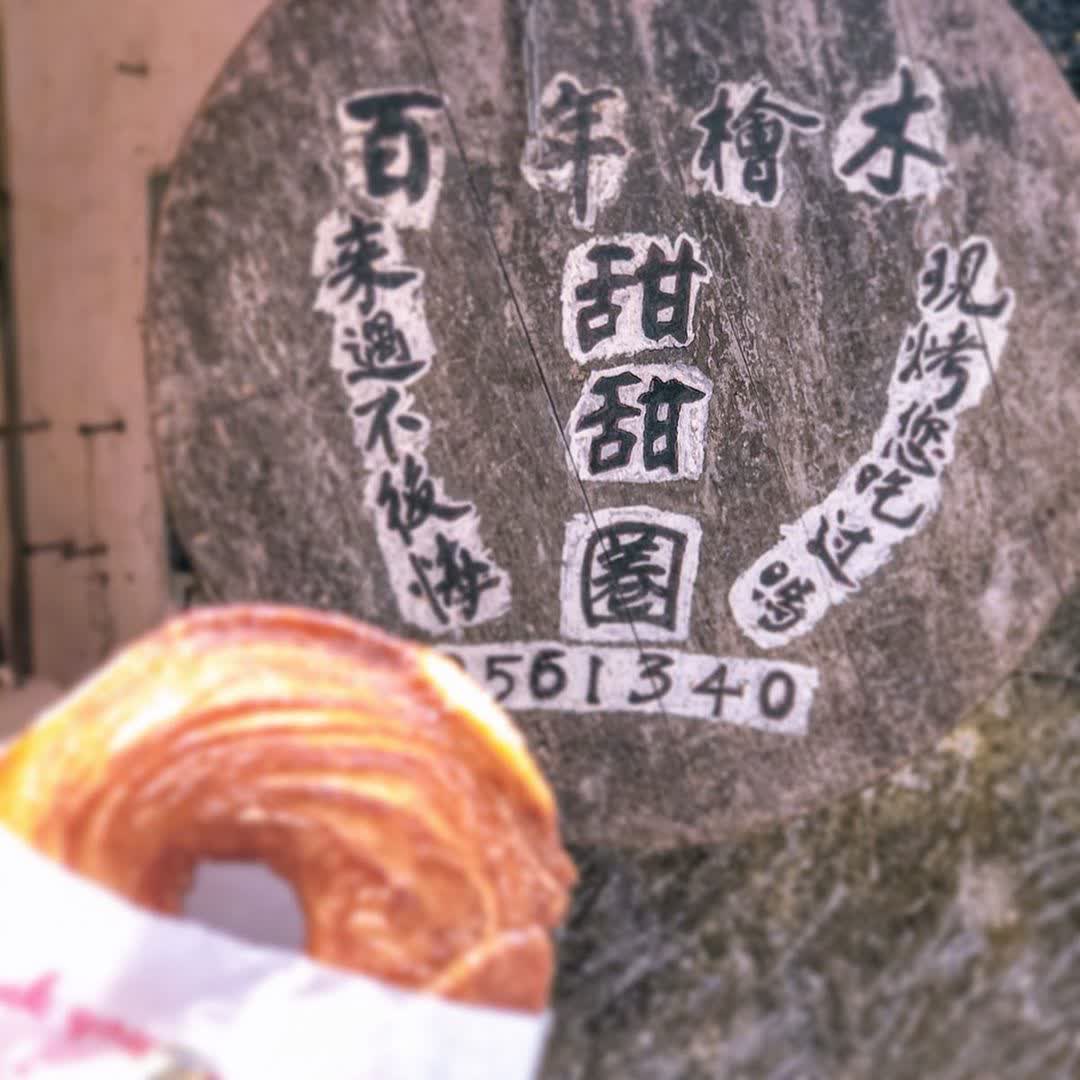 百年檜木
甜甜圈
來過不後悔
現烤您吃過嗎
561340